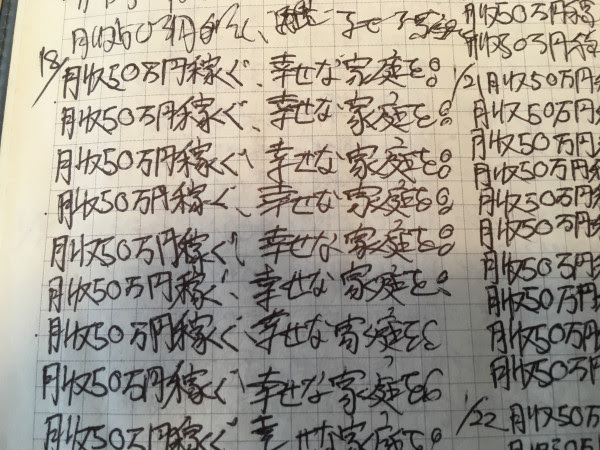 月収50万円稼ぐ、幸せな家庭を
18/月収50万円稼ぐ、幸せな家庭を。
月収50万円稼ぐ、幸せな家庭を。
月収50万円稼ぐ、幸せな家庭を。
月収50万円稼ぐ、幸せな家庭を。
月収50万円稼ぐ、幸せな家庭を。
月収50万円稼ぐ、幸せな家庭を
月収50万円稼ぐ、幸せな家庭を
月収50万円稼ぐ、幸せな家庭を
月収50万円稼ぐ、幸せな家庭を
月収50万円稼
月収50万円稼
1/21月収50万円稼
月収50万円
月収50万円
月収50万円
月収50万円
月収50万円
月収50万円
月収50万円
月収50万円
月収50万円
1/22月収50万